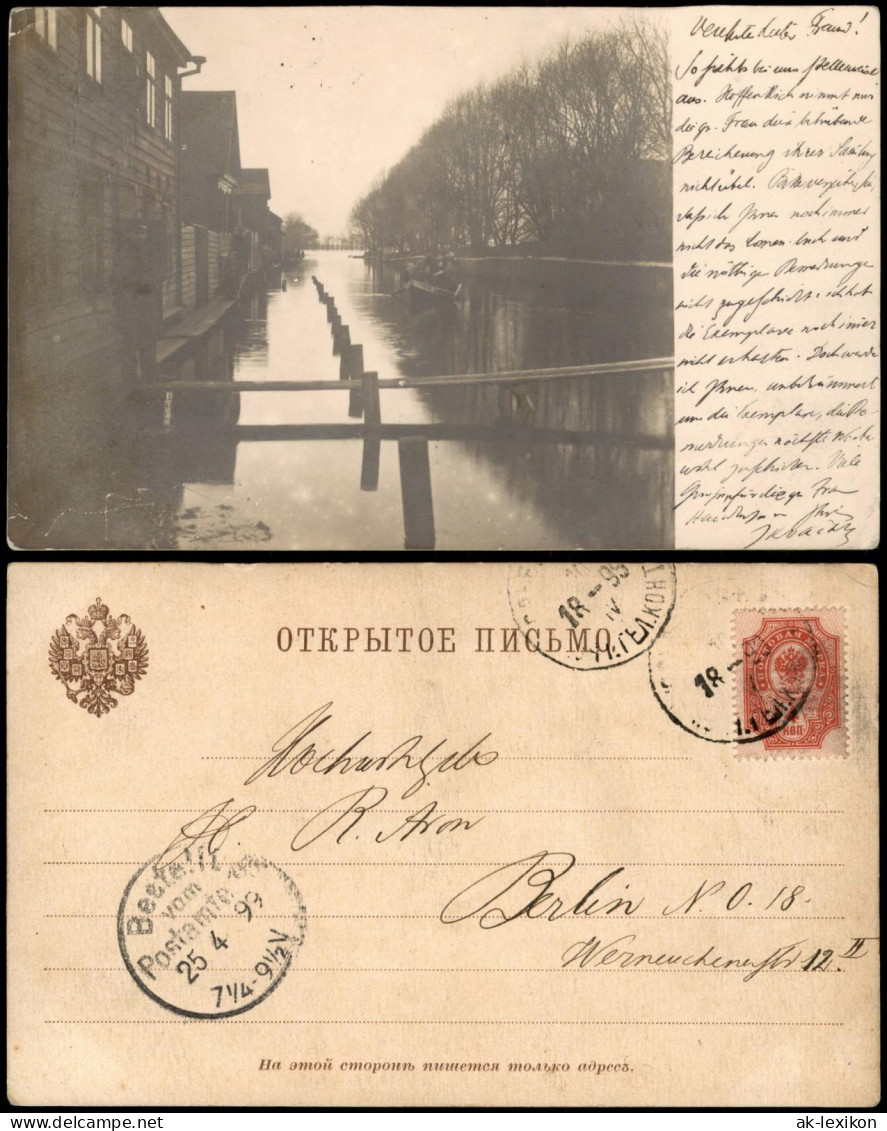 Verehrtester Freund!
So sieht's bei uns stellenweise
aus. Hoffentlich nimmt mir
die gr. Frau diese betrübende
Bereicherung ihrer Samlung
nicht übel. Bitte verzeihen Sie,
dass ich Ihnen noch immer
nicht das buch und
die nöthige Bemerkungen
nicht zugeschickt: ich hab
die Exemplare noch immer
nicht erhalten. Doch werde
ich Ihnen, unbekümmert
um die Exemplare, die Be-
merkungen nächste Woche
wohl zuschicken. Viele
Grüsse für die gr. Frau
Ihr
ОТКРЫТОЕ ПИСЬМО.
18 - 99
IV
18 -
КОП
Hochwohlgeb.
H. R. Aron
Berlin N.O. 18.
Werneuchenerstr 12. II
Bestellt
vom
Postamte
25 4 99
7 1/4 - 9 1/2 V
На этой сторонѣ пишется только адресъ.
ak-lexikon